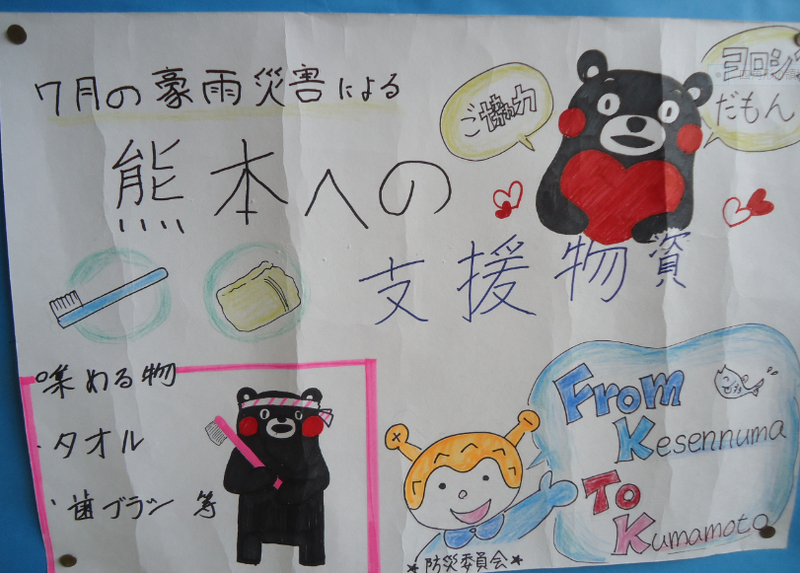 7月の豪雨災害による
熊本への
支援物資
ご協力
ヨロシク
だもん
集める物
・タオル
・歯ブラシ 等
From
Kesennuma
To
Kumamoto
★防災委員会★